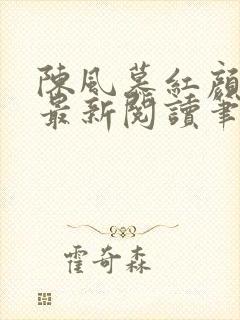 陳風慕紅顏
最新閱讀筆
霍奇森